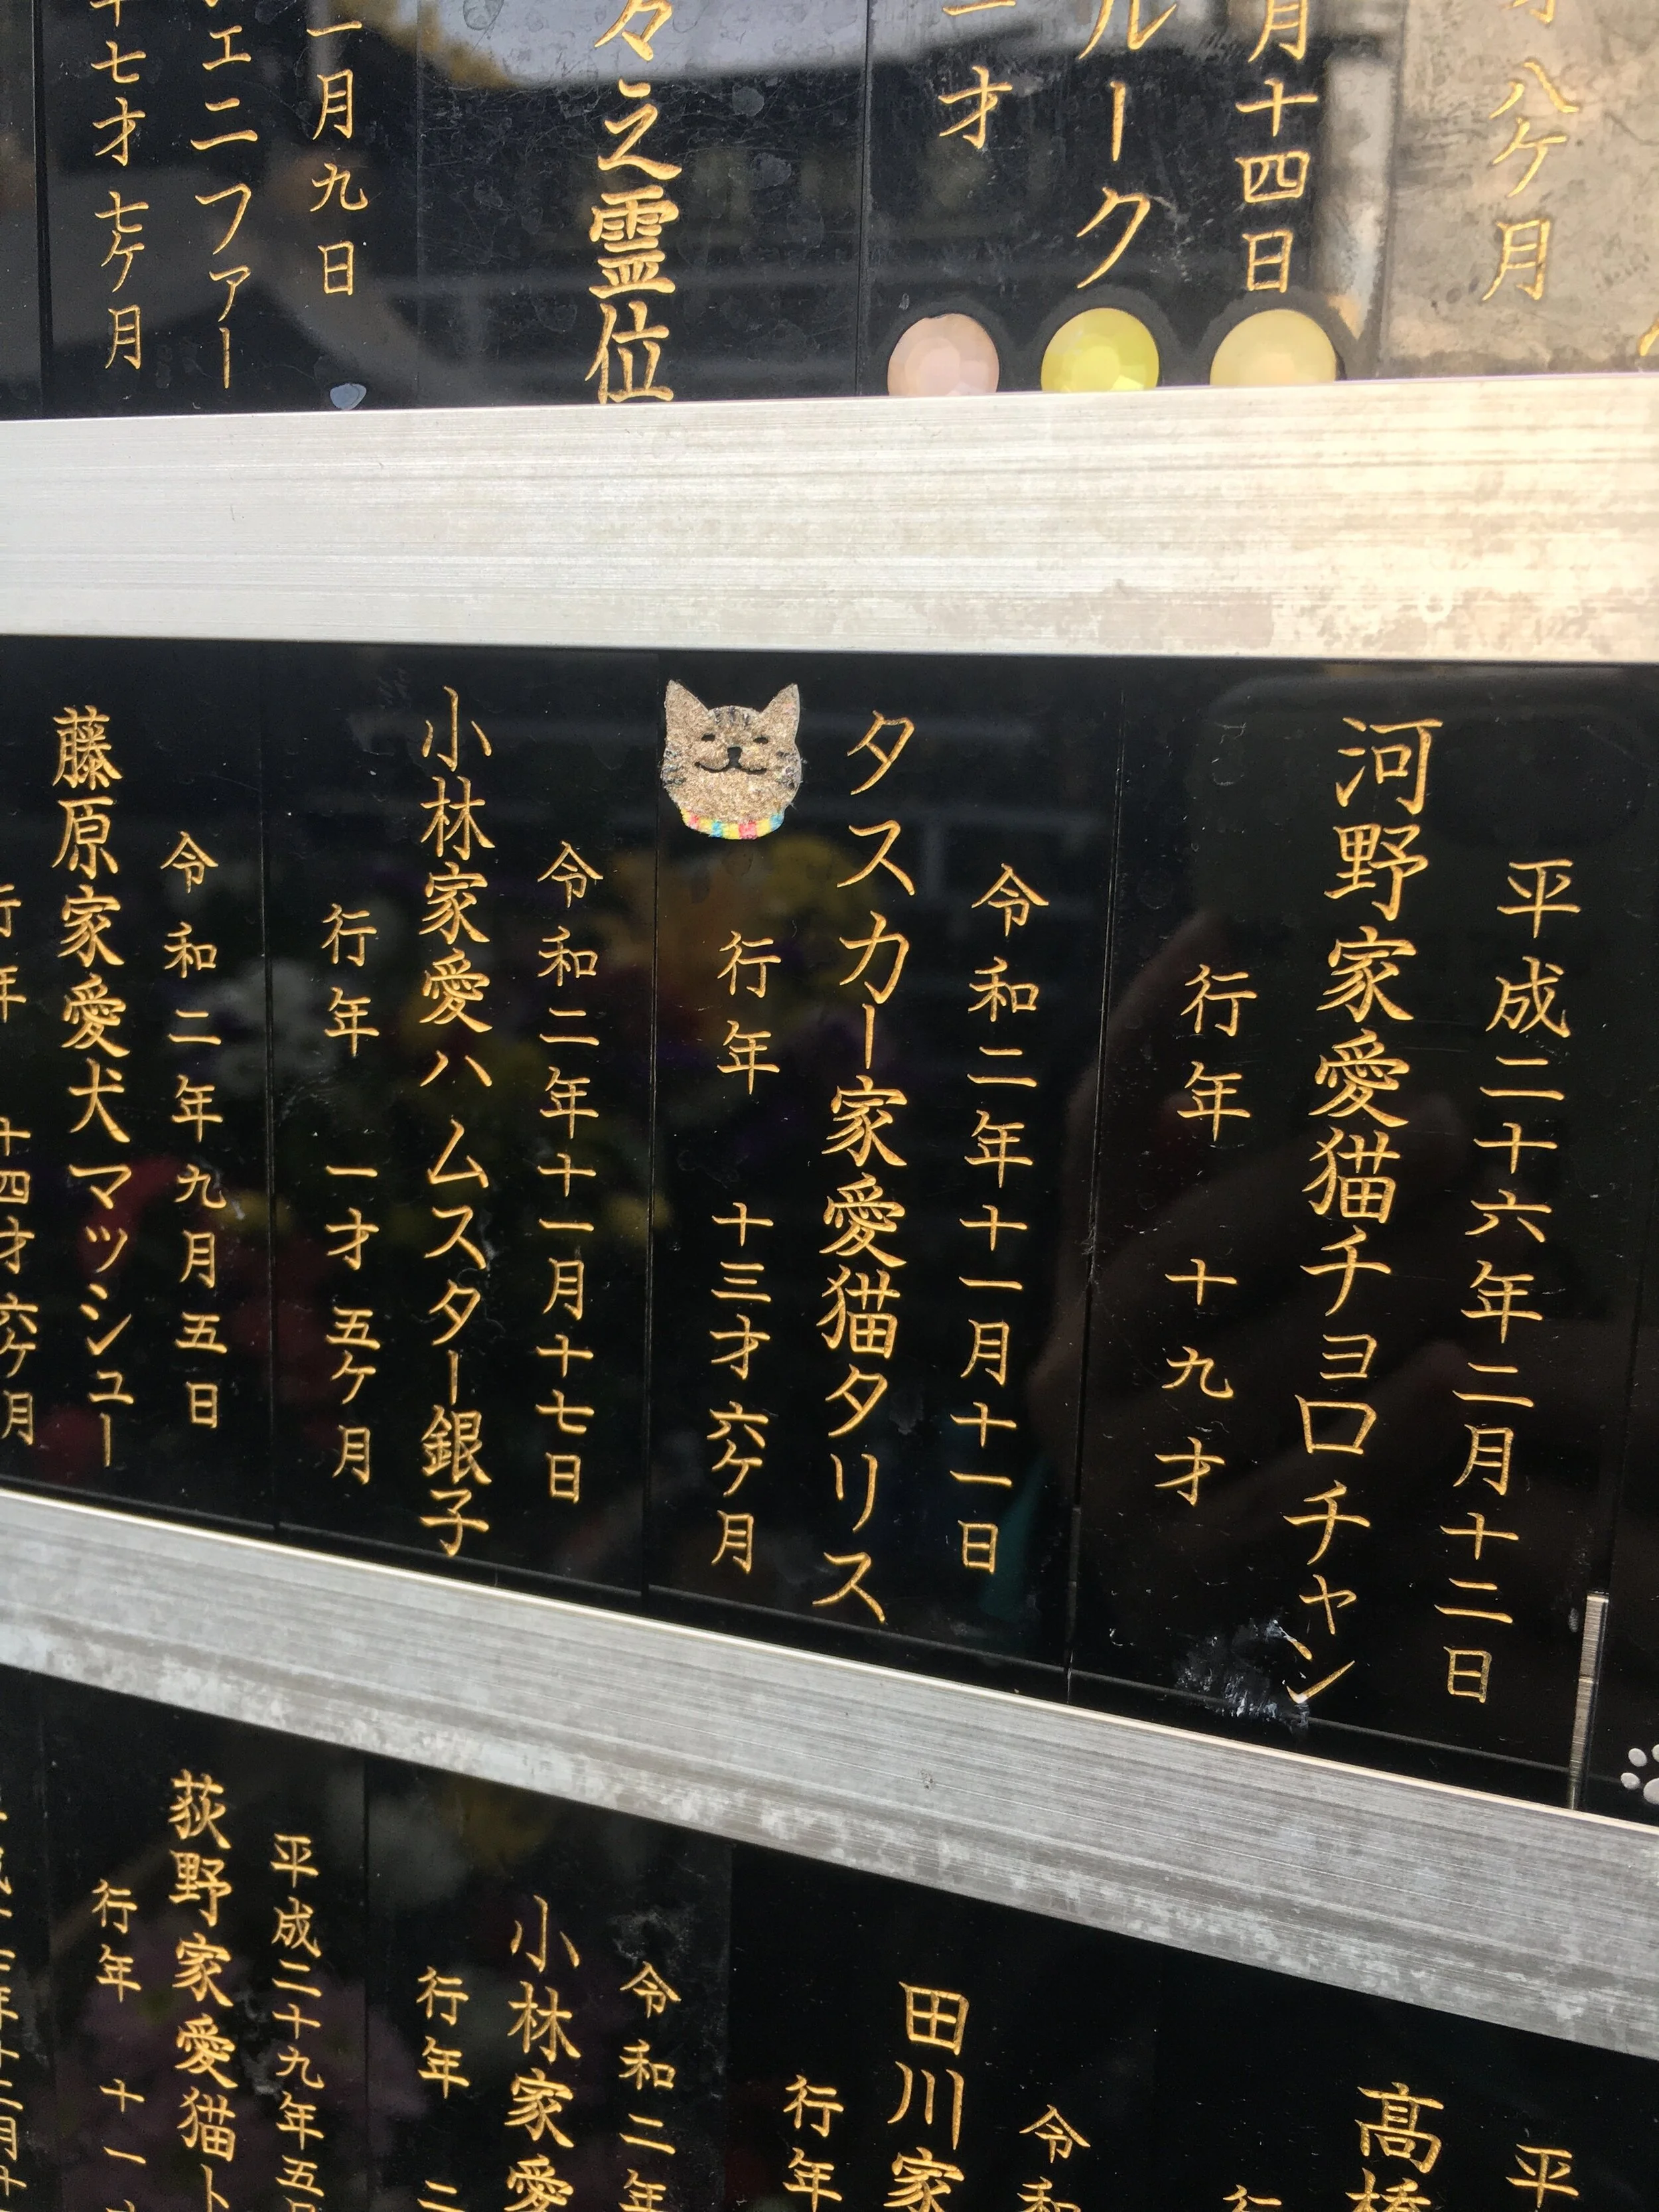 八ケ月
月十四日
ルーク
才
々之霊位
一月九日
ェニファー
十七才七ケ月
平成二十六年二月十二日
河野家愛猫チョロチャン
行年 十九才
令和二年十一月十一日
タスカー家愛猫タリス
行年 十三才六ケ月
令和二年十一月十七日
小林家愛ハムスター銀子
行年 一才五ケ月
令和二年九月五日
藤原家愛犬マッシュー
行年 十四才六ケ月
平
髙橋
行
令和
田川家
行年
令和二年
小林家愛
行年 二
平成二十九年五月
荻野家愛猫ト
行年 十一